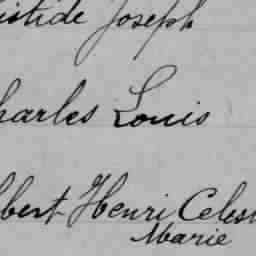 istide Joseph
harles Louis
bert Henri Celest
Marie